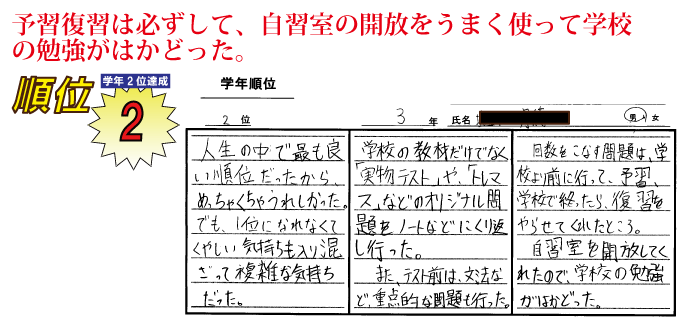 予習復習は必ずして、自習室の開放をうまく使って学校
の勉強がはかどった。
順位
学年2位達成
2
学年順位
2 位
3 年
氏名
男 女
人生の中で最も良
い順位だったから、
めっちゃくちゃうれしかった。
でも、1位になれなくて
くやしい気持ちも入り混
ざって複雑な気持ち
だった。
学校の教材だけでなく
「実物テスト」や、「トレマ
ス」などのオリジナル問
題をノートなどにくり返
し行った。
また、テスト前は、文法な
ど、重点的な問題も行った。
回数をこなす問題は、学
校より前に行って、予習、
学校で終ったら、復習を
やらせてくれたところ。
自習室を開放してく
れたので、学校の勉強
がはかどった。